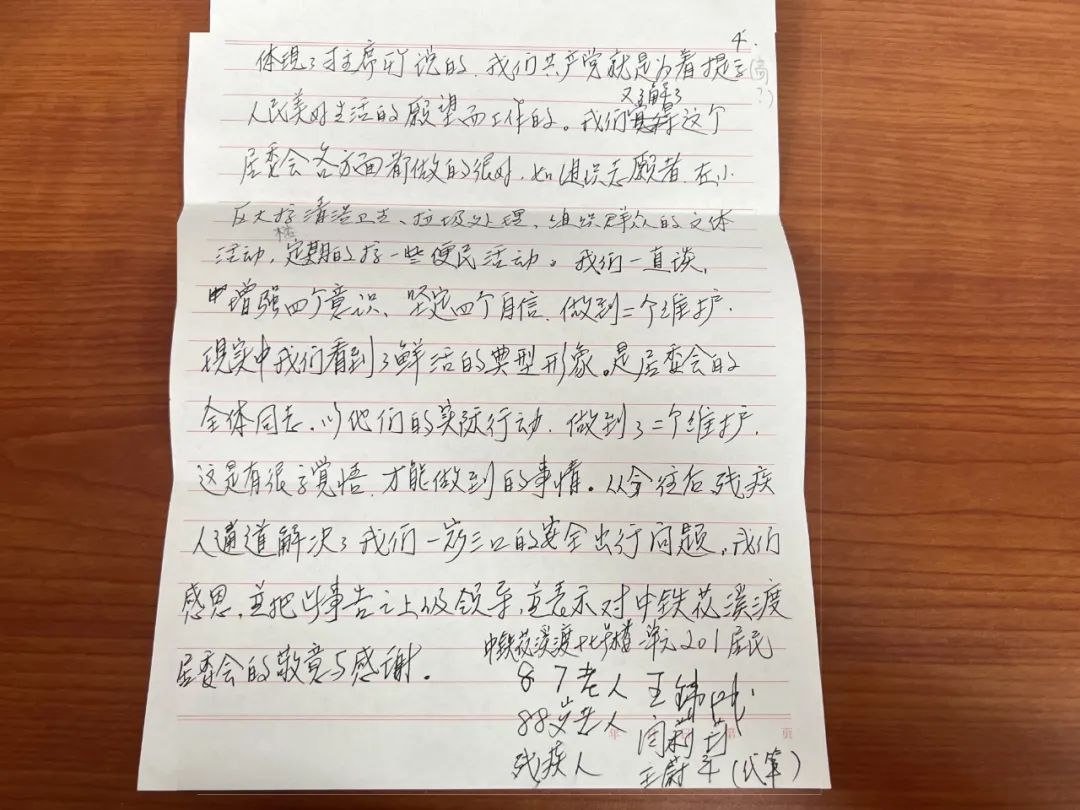 4.
体现了习主席所说的,我们共产党就是为着提高(高?)
人民美好生活的愿望而工作的。我们又了解了这个
居委会各方面都做的很好,如组织志愿者,在小
区大搞清洁卫生、垃圾处理,组织群众的文体
活动,定期的搞一些便民活动。我们一直谈,
增强四个意识、坚定四个自信,做到二个维护.
现实中我们看到了鲜活的典型形象。是居委会的
全体同志,以他们的实际行动,做到了二个维护,
这是有很高觉悟,才能做到的事情。从今往后,残疾
人通道解决了我们一家三口的安全出行问题,我们
感恩,並把此事告之上级领导,並表示对中铁花溪渡
居委会的敬意与感谢。
中铁花溪渡十七号楼一单元201居民
87老人 王
88岁老人 闫莉莉
残疾人 王蔚平(代笔)
年 第 页